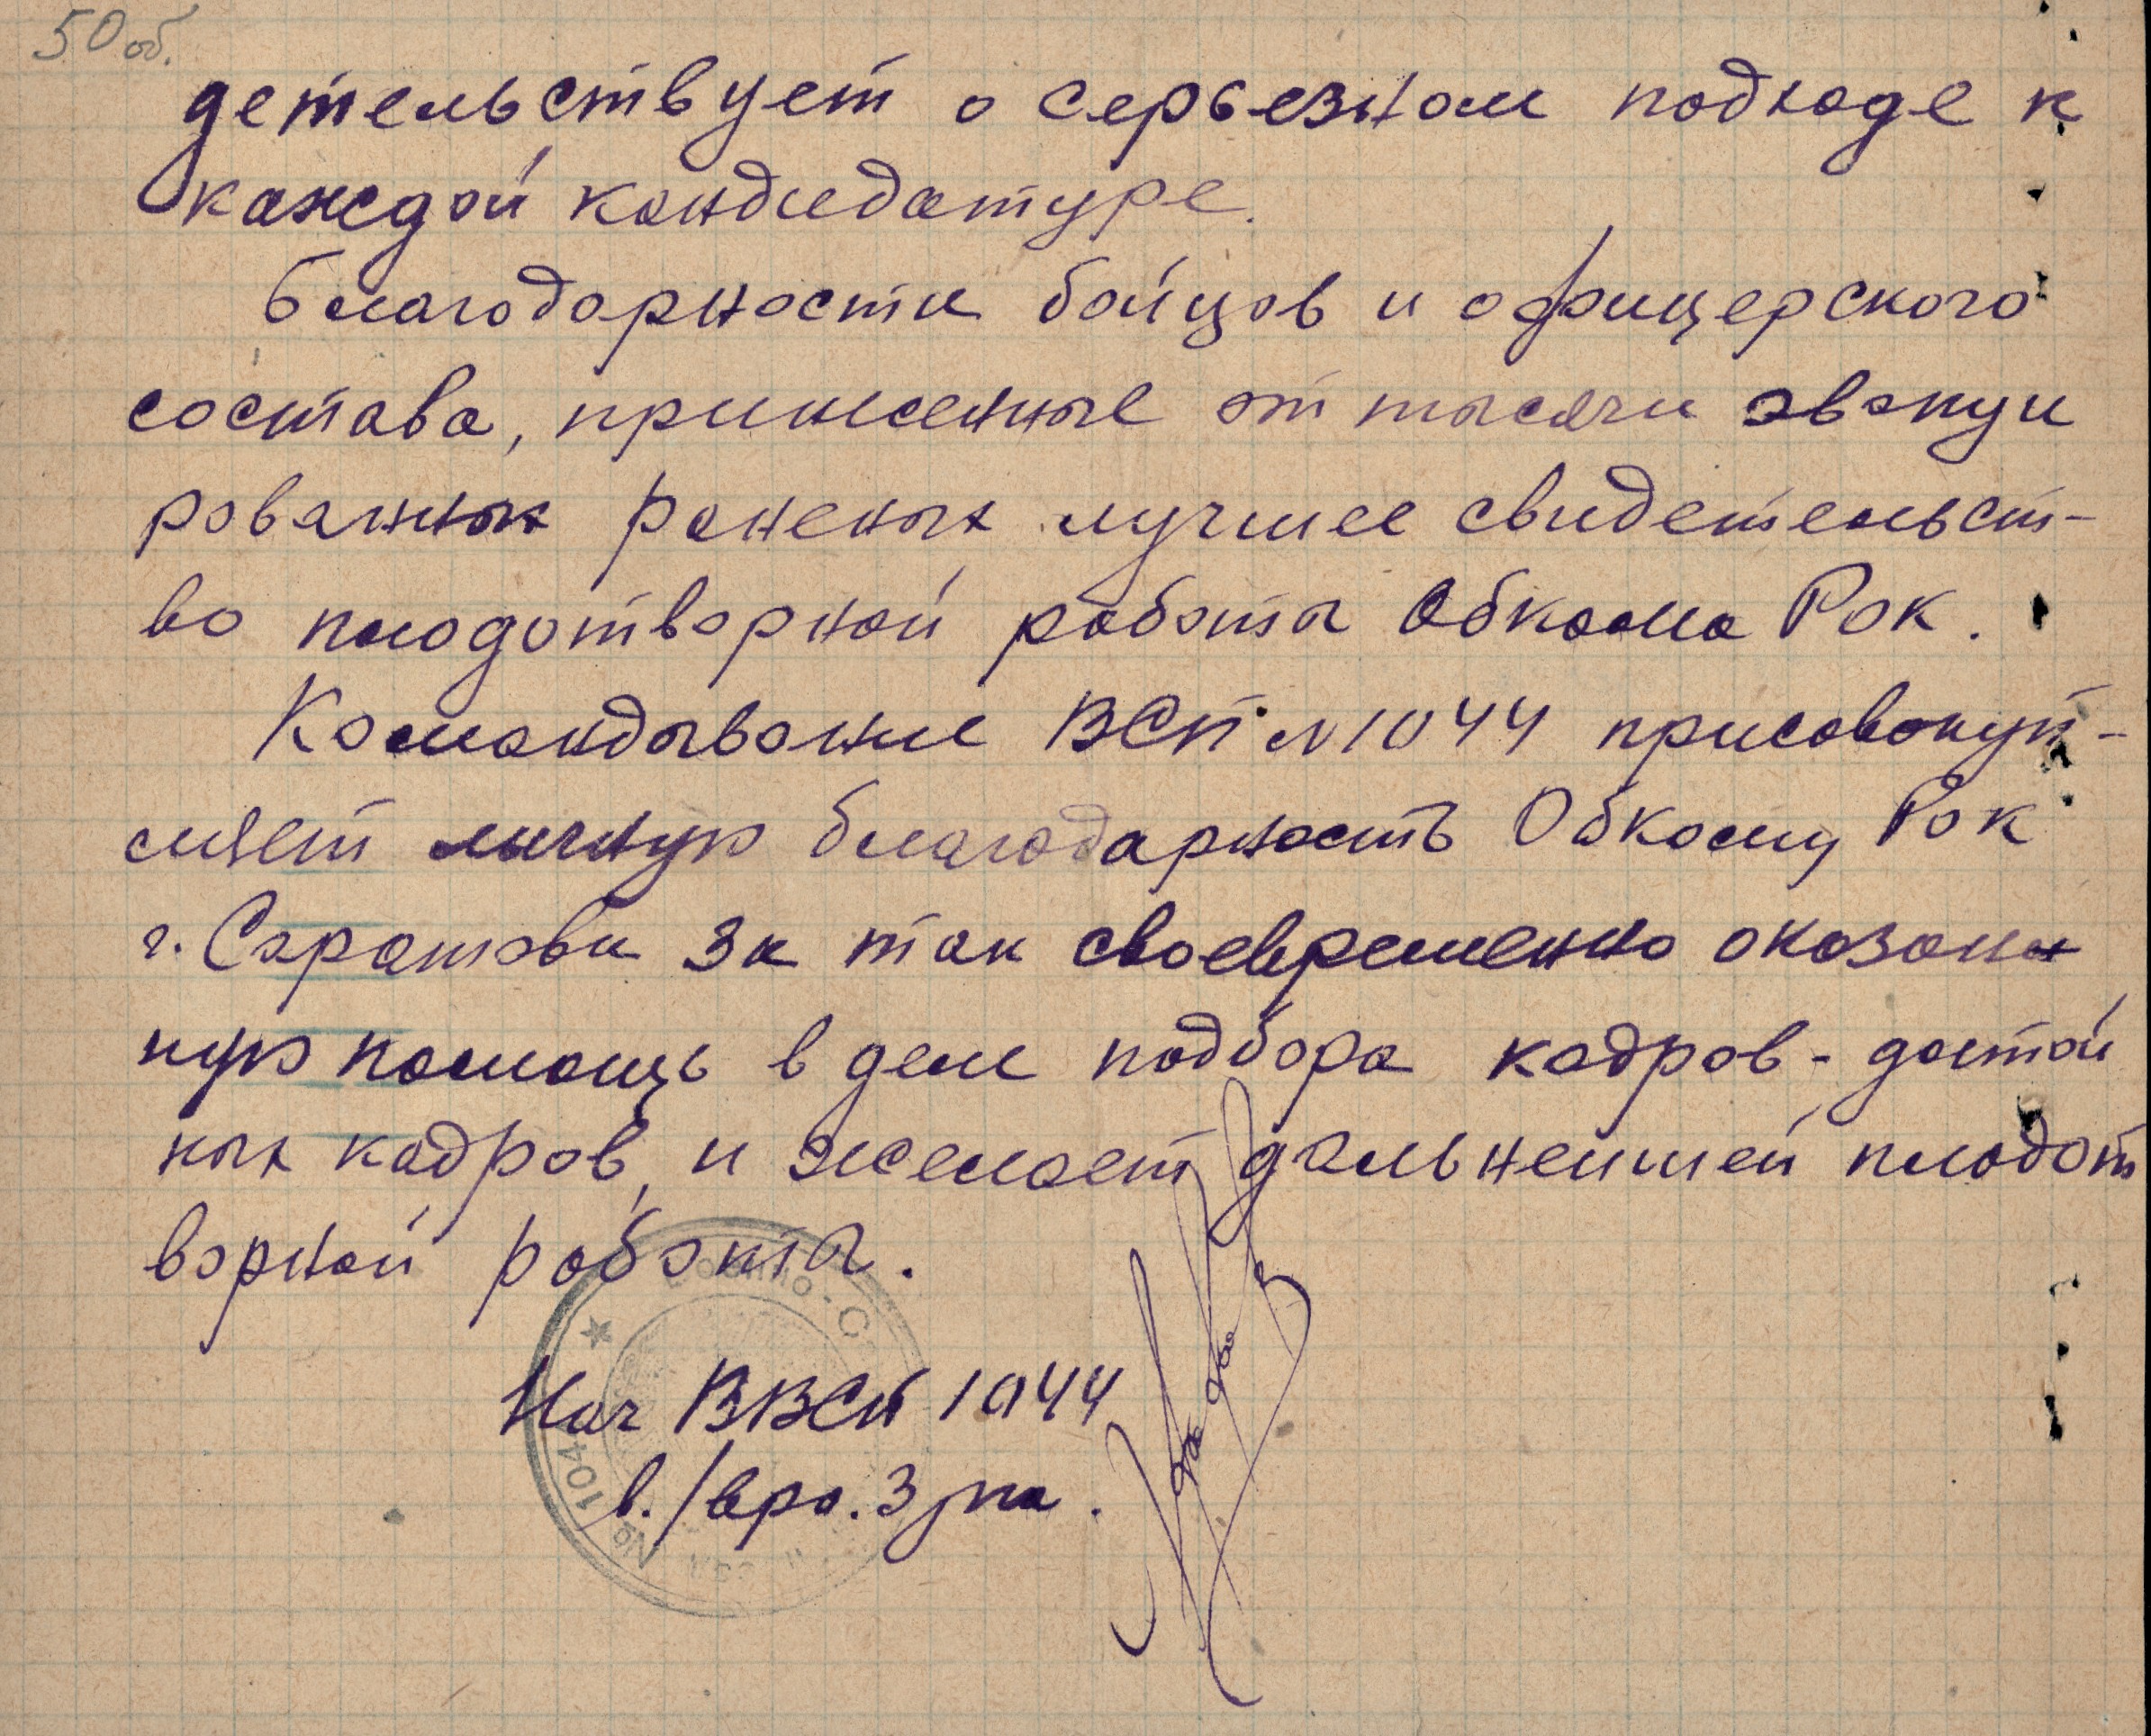 50 об.
детельствует о серьезном подходе к
каждой кандидатуре.
Благодарности бойцов и офицерского
состава, принесенные от тысячи эвакуи
рованных раненых лучшее свидетельст-
во плодотворной работы Обкома Рок.
Командывание ВСП №1044 присовокуп-
ляет личную благодарность Обкому Рок
г. Саратова за так своевременно оказан
ную помощь в деле подбора кадров - достой
ных кадров, и желает дальнейшей плодот
ворной работы.
Нач ВВСП 1044
в./вра. 3 р-на.
Военно-С
№ 104